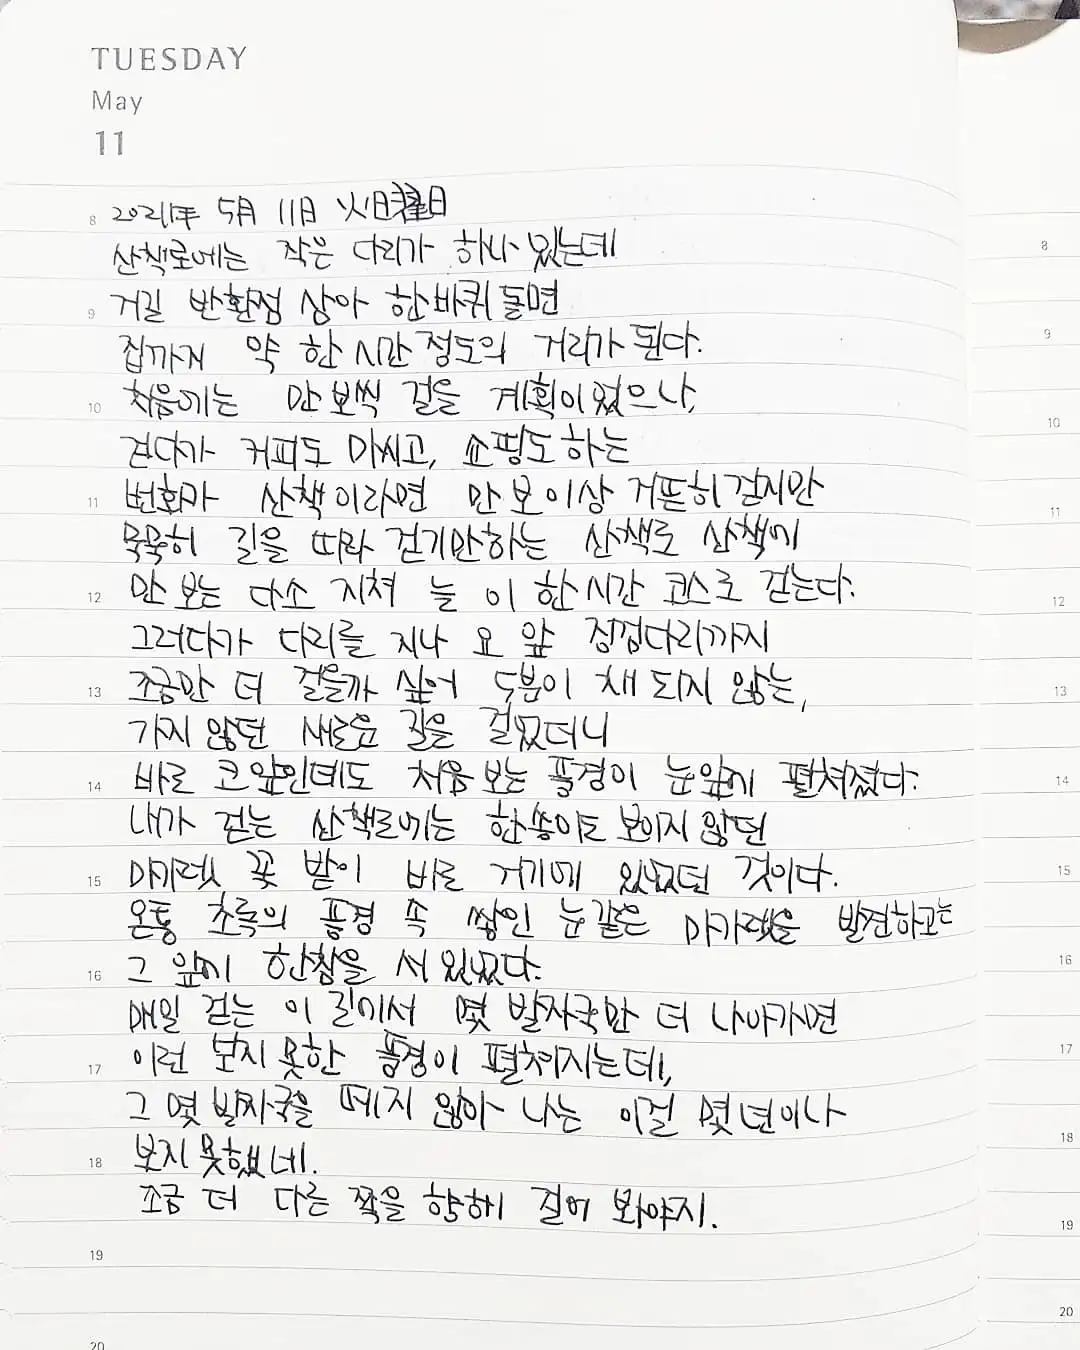 TUESDAY
May
11
8 2021年 5月 11日 火曜日
산책로에는 작은 다리가 하나 있는데
9 거길 반환점 삼아 한바퀴 돌면
집까지 약 한 시간 정도의 거리가 된다.
10 처음에는 만 보씩 걸을 계획이었으나,
걷다가 커피도 마시고, 쇼핑도 하는
11 번화가 산책이라면 만 보 이상 거뜬히 걷지만
묵묵히 길을 따라 걷기만하는 산책로 산책에
12 만 보는 다소 지쳐 늘 이 한 시간 코스로 걷는다.
그러다가 다리를 지나 요 앞 징검다리까지
13 조금만 더 걸을까 싶어 5분이 채 되지 않는,
가지 않던 새로운 길을 걸었더니
14 바로 코앞인데도 처음 보는 풍경이 눈앞에 펼쳐졌다.
내가 걷는 산책로에는 한송이도 보이지 않던
15 마가렛 꽃 밭이 바로 거기에 있었던 것이다.
온통 초록의 풍경 속 쌓인 눈같은 마가렛을 발견하고는
16 그 앞에 한참을 서 있었다.
매일 걷는 이 길에서 몇 발자국만 더 나아가면
17 이런 보지 못한 풍경이 펼쳐지는데,
그 몇 발자국을 떼지 않아 나는 이걸 몇 년이나
18 보지 못했네.
조금 더 다른 쪽을 향해 걸어 봐야지.
19
20
8
9
10
11
12
13
14
15
16
17
18
19
20